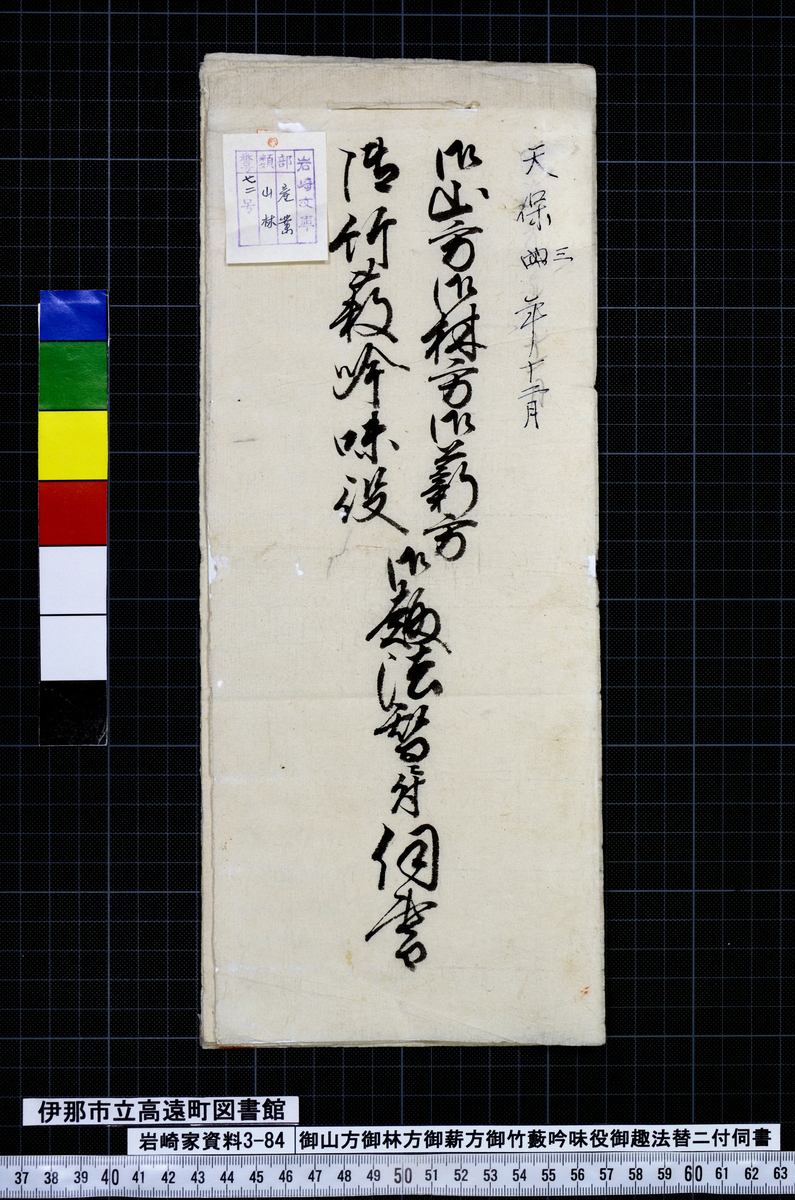 天保三年十二月
御山方御林方御薪方
御竹藪吟味役
御趣法替ニ付
伺書
岩崎文庫
部 産業
類 山林
七二号
伊那市立高遠町図書館
岩崎家資料3-84 御山方御林方御薪方御竹藪吟味役御趣法替ニ付伺書
37 38 39 40 41 42 43 44 45 46 47 48 49 50 51 52 53 54 55 56 57 58 59 60 61 62 63